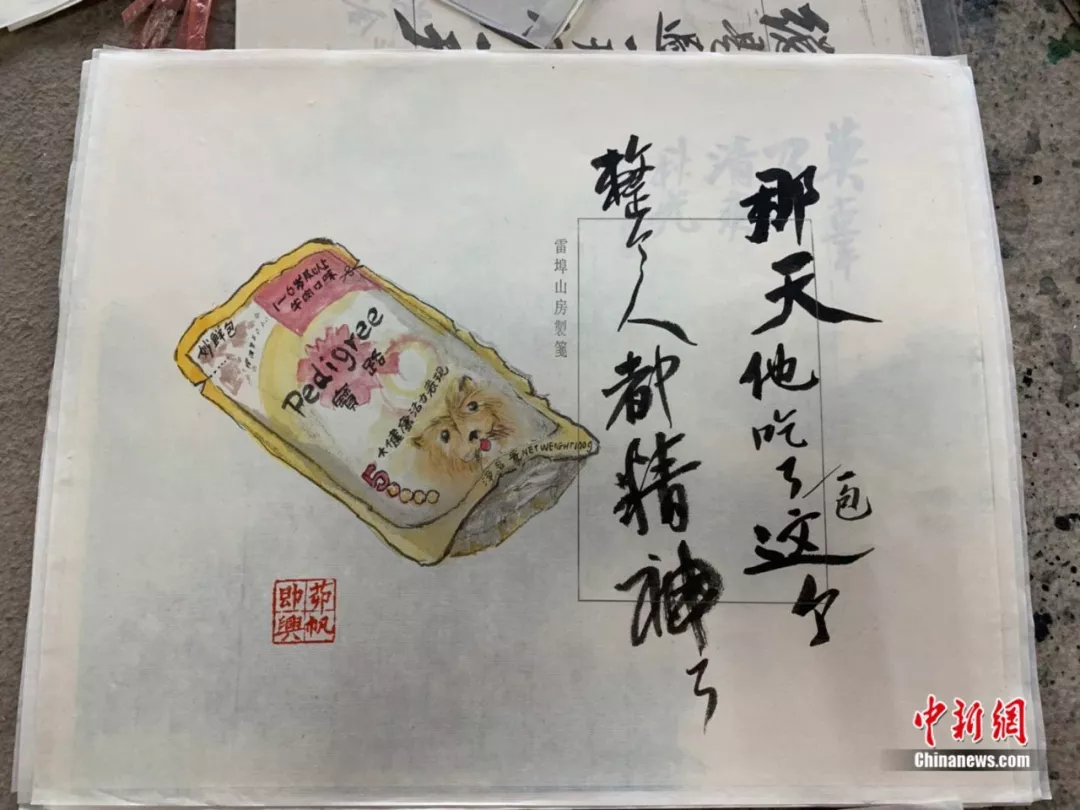 那天他吃了一包这个
整个人都精神了
雷埠山房製箋
牛肉口味
妙鮮包
Pedigree
寶路
5大健康活力表现
净含量NET WEIGHT100g
茆帆
即興
中新網
Chinanews.com